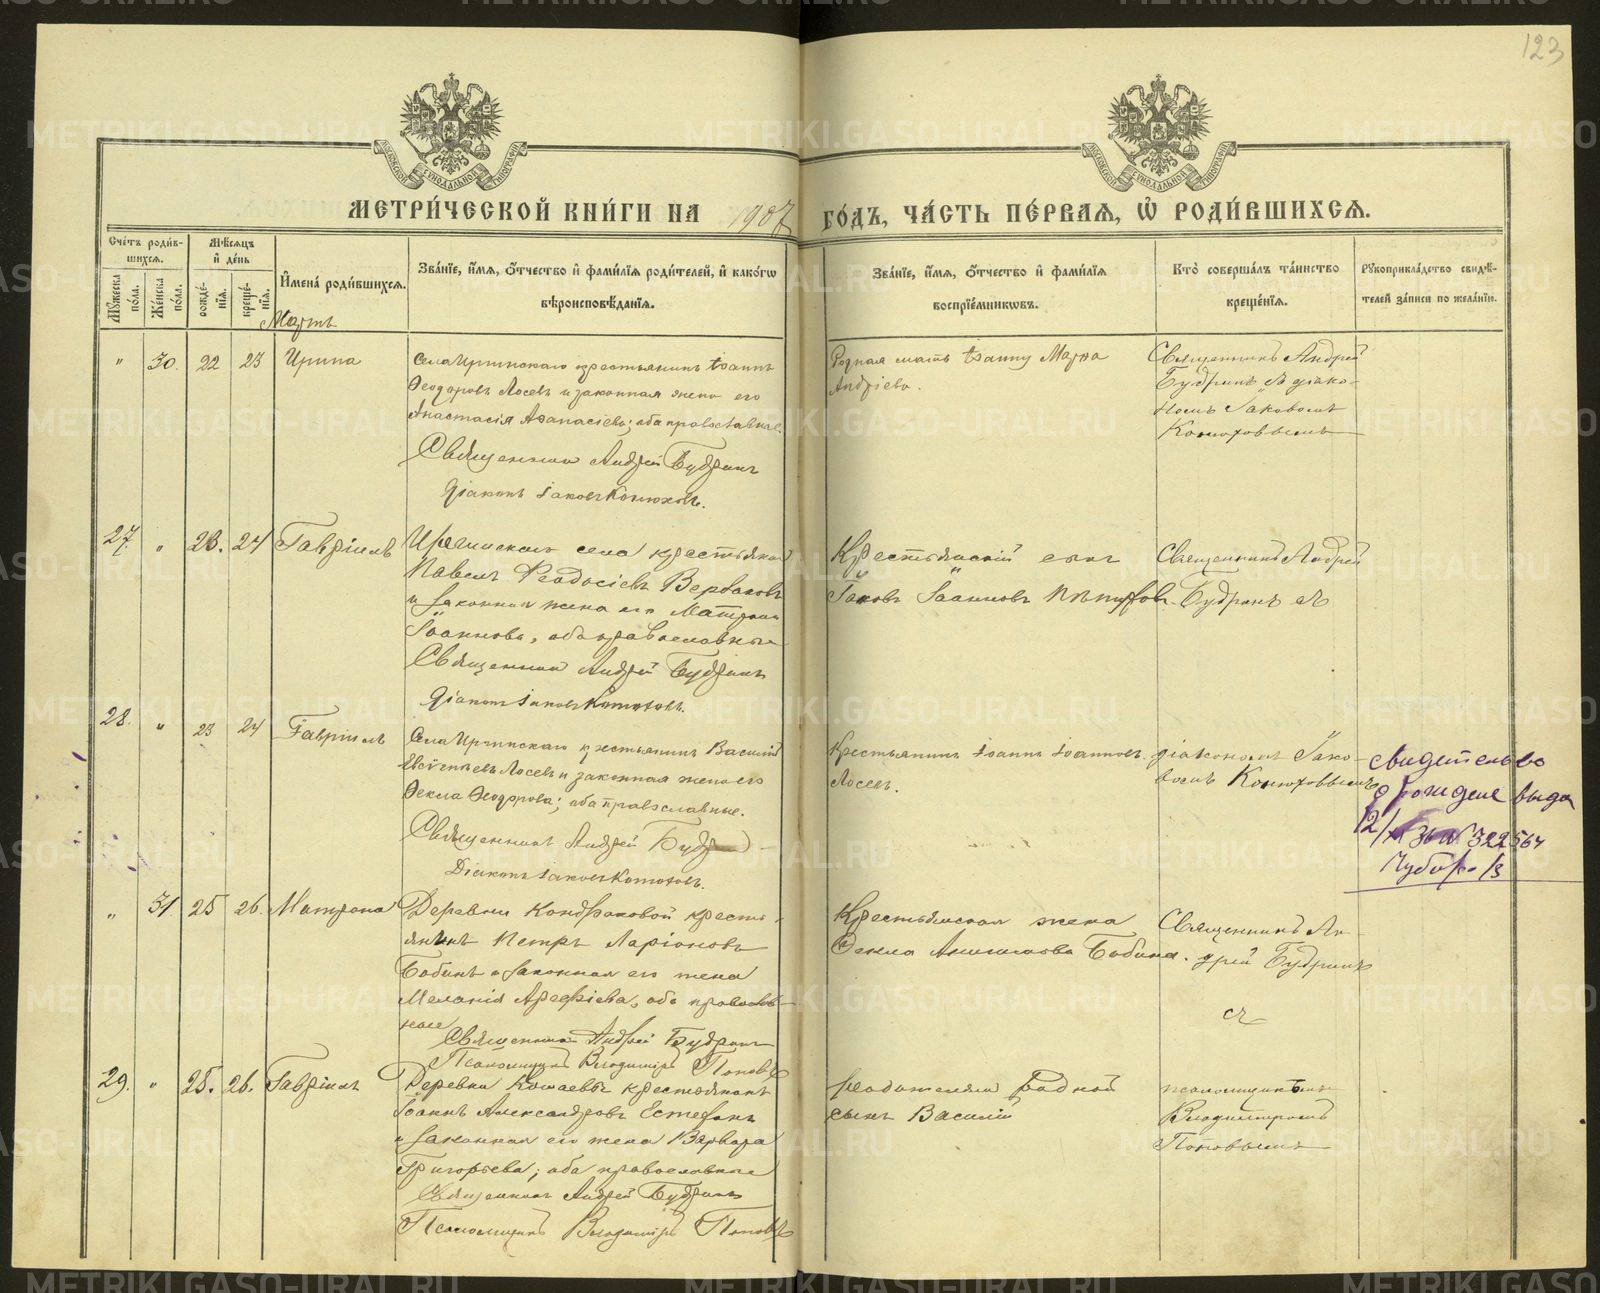 123
МОСКОВСКОЙ СѴНОДАЛЬНОЙ ТИПОГРАФІИ
МОСКОВСКОЙ СѴНОДАЛЬНОЙ ТИПОГРАФІИ
МЕТРИ́ЧЕСКОЙ КНИ́ГИ НА 1907 ГО́ДЪ, ЧА́СТЬ ПЕ́РВАЯ, Ѡ҆ РОДИ́ВШИХСЯ.
Сче́тъ роди́в-
шихся.
Мѣ́сяцъ
и҆ де́нь
Му́жеска по́ла.
Же́нска по́ла.
рожде́-нїя.
креще́-нїя.
И҆мена̀ роди́вшихся.
Зва́нїе, и҆́мя, ѻ҆́тчество и҆ фами́лїя роди́телей, и҆ како́гѡ
вѣроисповѣ́данїя.
Зва́нїе, и҆́мя, ѻ҆́тчество и҆ фами́лїя
воспрїе́мникѡвъ.
Кто̀ соверша́лъ та́инство
креще́нїя.
Рукоприкла́дство свидѣ́-
телей за́писи по жела́нїю.
Мартъ
" 30. 22 23 Ирина
Села Иргинскаго крестьянинъ Іоаннъ
Ѳеодоровъ Лосевъ и законная жена его
Анастасія Аѳанасіева; оба православные.
Священникъ Андрей Будринъ
Діаконъ Іаковъ Конюховъ.
Родная мать Іоанну Марѳа
Андріева.
Священникъ Андрей
Будринъ съ діако-
номъ Іаковомъ
Конюховымъ
27. " 23. 24 Гавріилъ
Иргинскаго села крестьянинъ
Павелъ Ѳеодосіевъ
и законная жена его
Іоаннова, оба православные
Священникъ Андрей Будринъ
Діаконъ Іаковъ Конюховъ.
Крестьянскій сынъ
Іаковъ Іоанновъ
Священникъ Андрей
Будринъ съ
28. " 23 24 Гавріилъ
Села Иргинскаго крестьянинъ Василій
Лосевъ и законная жена его
Ѳекла Ѳеодорова; оба православные.
Священникъ Андрей Будринъ
Діаконъ Іаковъ Конюховъ.
Крестьянинъ Іоаннъ Іоанновъ
Лосевъ.
діакономъ Іако-
вомъ Конюховымъ
Свидетельство
о рождене выда
322564
" 31 25 26. Матрона
Деревни Кондраковой кресть-
янинъ Петръ Ларіоновъ
Бабинъ и законная его жена
Меланія Арефіева, оба православ-
ные
Священникъ Андрей Будринъ
Псаломщикъ Владиміръ Поповъ
Крестьянская жена
Ѳекла Бабина.
Священникъ Ан-
дрей Будринъ
съ
29. " 25. 26. Гавріилъ
Деревни крестьянинъ
Іоаннъ Александровъ
и законная его жена Варвара
Григорьева; оба православные
Священникъ Андрей Будринъ
Псаломщикъ Владиміръ Поповъ
родной
сынъ Василій
псаломщикомъ
Владиміромъ
Поповымъ
METRIKI.GASO-URAL.RU